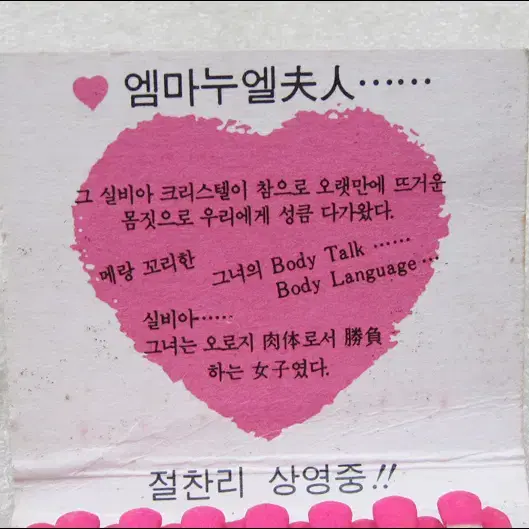 엠마누엘夫人……
그 실비아 크리스텔이 참으로 오랫만에 뜨거운
몸짓으로 우리에게 성큼 다가왔다.
메랑 꼬리한
그녀의 Body Talk ……
Body Language …
실비아……
그녀는 오로지 肉体로서 勝負
하는 女子였다.
절찬리 상영중!!